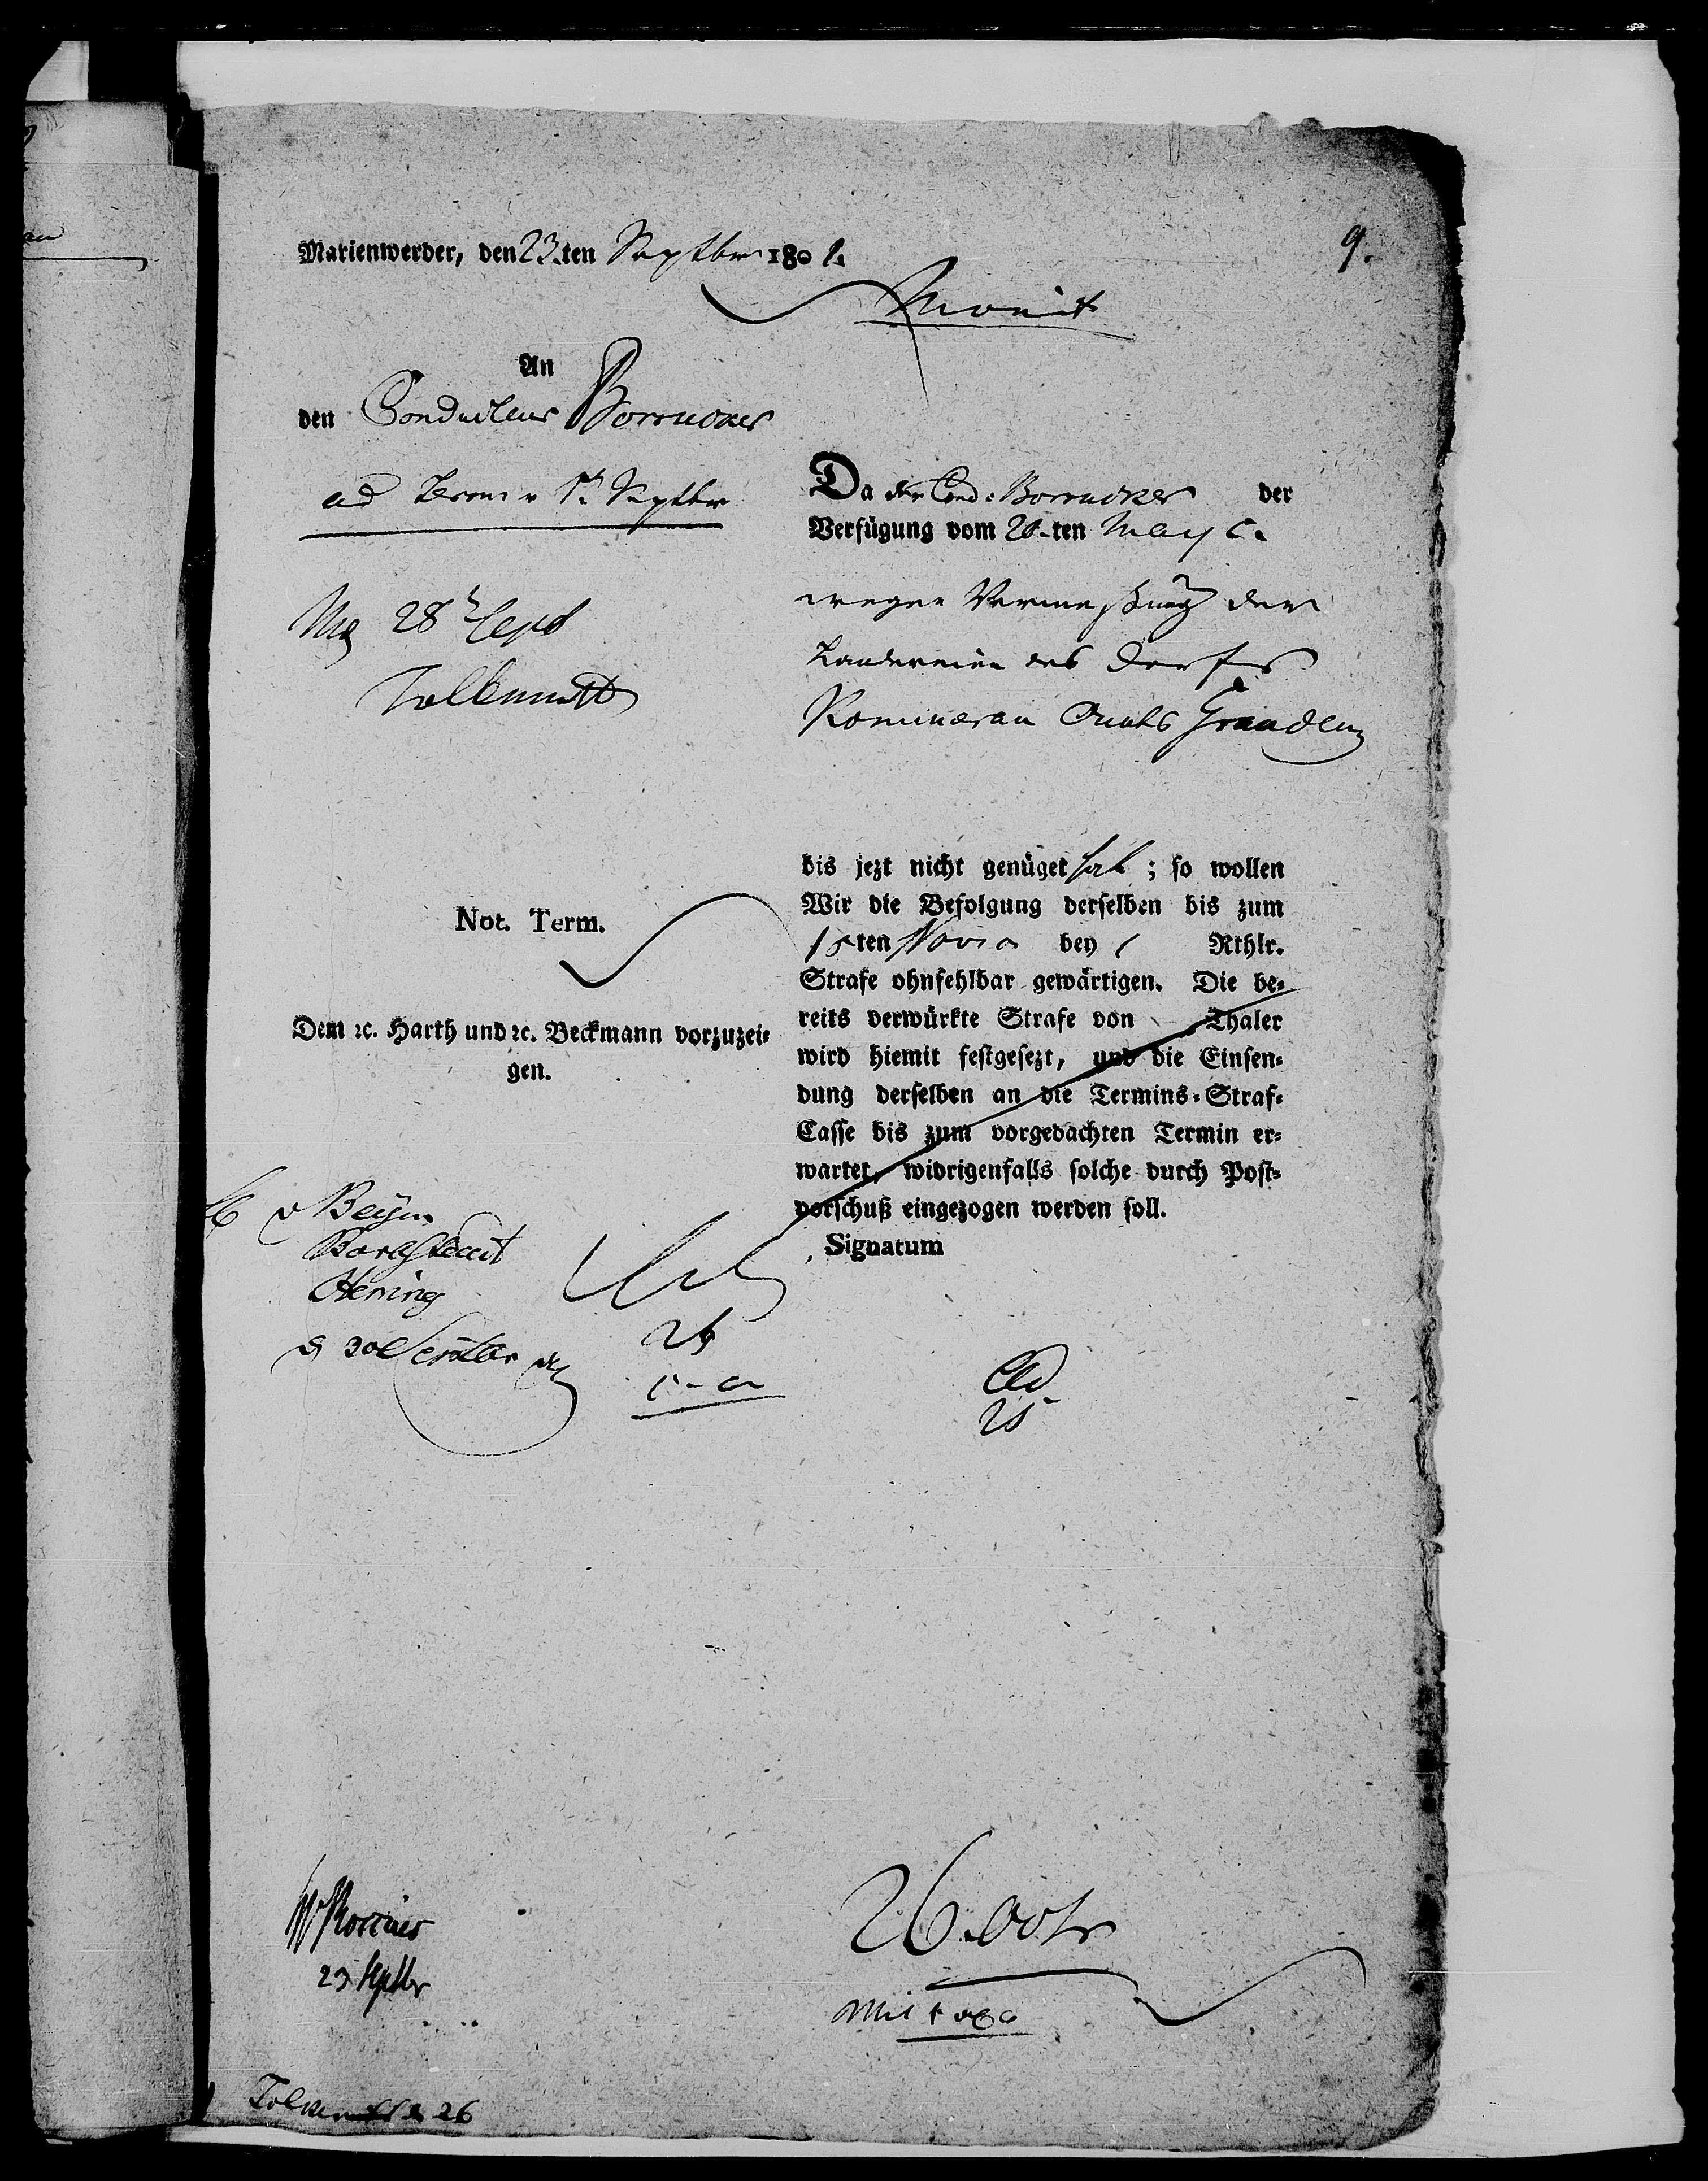 9.
Marienwerder, den 23.ten Septbr 1801.
Monit
An
den Conducteur Borrucker
ad Term: 1t. Septbr
28 Sept
Tolkemitt
Da der Cond: Borrucker der
Verfügung vom 20.ten May c.
wegen Vermeßung der
Ländereien des Dorfs
Kommerau Amts Graudenz
bis jezt nicht genüget hat; so wollen
Wir die Befolgung derselben bis zum
15ten Nov: bey 1 Rthlr.
Strafe ohnfehlbar gewärtigen. Die be-
reits verwürkte Strafe von Thaler
wird hiemit festgesezt, und die Einsen-
dung derselben an die Termins-Straf-
Casse bis zum vorgedachten Termin er-
wartet, widrigenfalls solche durch Post-
vorschuß eingezogen werden soll.
Signatum
Not. Term.
Dem ꝛc. Harth und ꝛc. Beckmann vorzuzei-
gen.
v Beyer
Hering
30 Septbr
26
25
23 Septbr
Tolkemitt 26